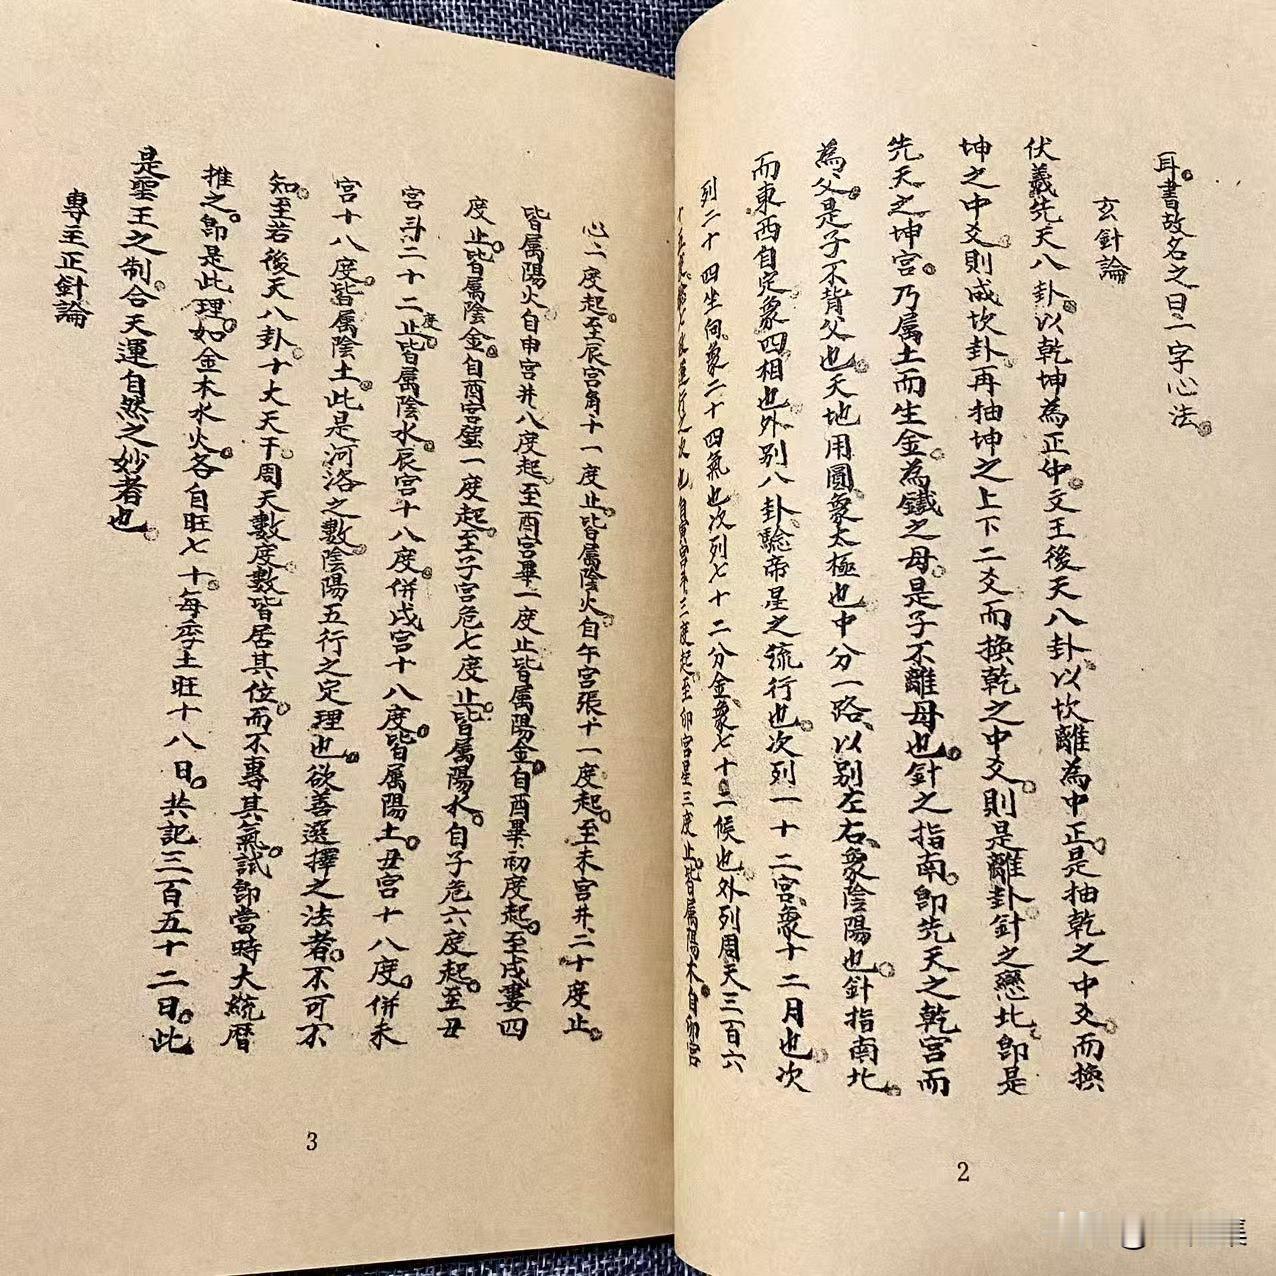 耳書故名之曰一字心法
玄針論
伏羲先天八卦以乾坤為正仲文王後天八卦以坎離為中正是抽乾之中爻而換
坤之中爻則成坎卦再抽坤之上下二爻而換乾之中爻則是離卦針之戀北即是
先天之坤宮乃属土而生金為鐵之母是子不離母也針之指南即先天之乾宮而
為父是子不背父也天地用圓象太極也中分一路以別左右象陰陽也針指南北
而東西自定象四相也外別八卦驗帝星之流行也次列一十二宮象十二月也次
列二十四生向象二十四氣也次列七十二分金象七十二候也外列周天三百六
十五度 也自寅宮 三度起至卯宮星三度止皆属陽木自卯宮
2
心二度起至辰宮角十一度止皆属陰火自午宮張十一度起至未宮井二十度止
皆属陽火自申宮井八度起至酉宮畢一度止皆属陽金自酉畢初度起至戌婁四
度止皆属陰金自酉宮壁一度起至子宮危七度止皆属陽水自子危六度起至丑
宮斗二十二度止皆属陰水辰宮十八度併戌宮十八度皆属陽土丑宮十八度併未
宮十八度皆属陰土此是河洛之數陰陽五行之定理也欲善選擇之法者不可不
知至若後天八卦十大天干周天數度數皆居其位而不專其氣試即當時大統暦
推之即是此理如金木水火各自旺七十每季土旺十八日共記三百五十二日此
是聖王之制合天運自然之妙者也
專主正針論
3